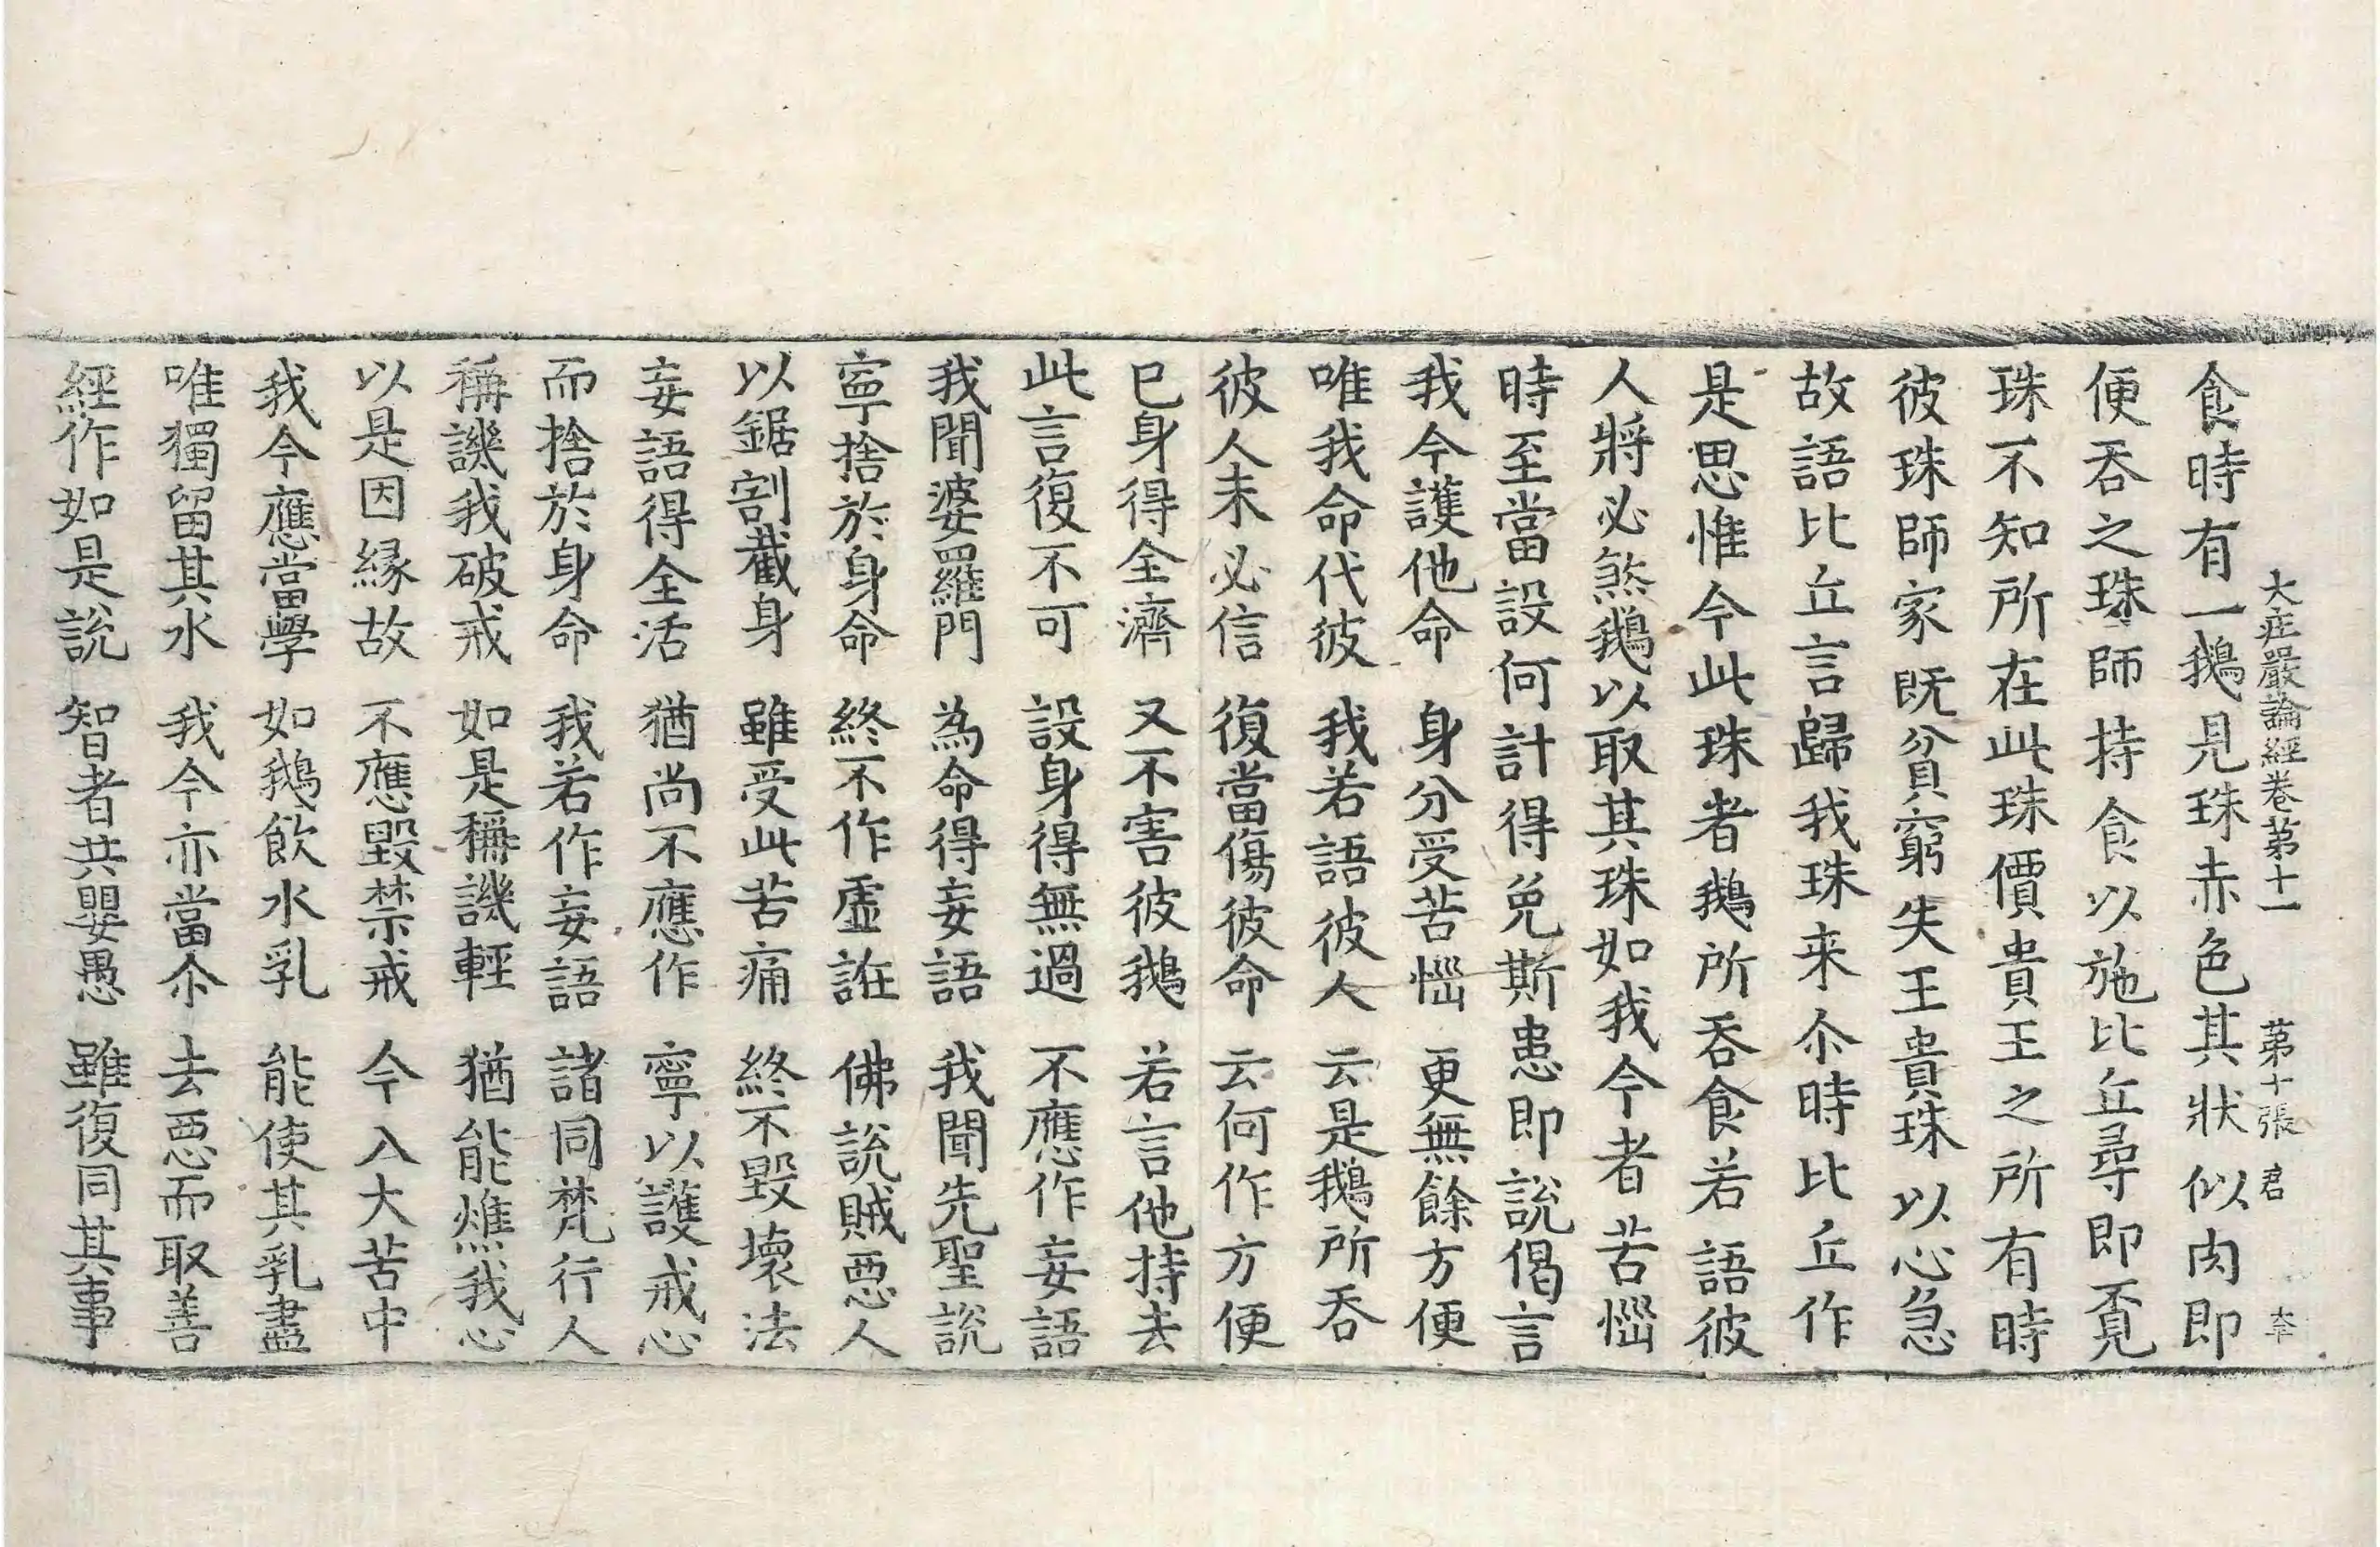 大莊嚴論經卷第十一 第十張 君
食時有一鵝見珠赤色其狀似肉即
便吞之珠師持食以施比丘尋即覔
珠不知所在此珠價貴王之所有時
彼珠師家既貧窮失王貴珠以心急
故語比丘言歸我珠来尒時比丘作
是思惟今此珠者鵝所吞食若語彼
人將必煞鵝以取其珠如我今者苦惱
時至當設何計得免斯患即說偈言
我今護他命 身分受苦惱 更無餘方便
唯我命代彼 我若語彼人 云是鵝所吞
彼人未必信 復當傷彼命 云何作方便
已身得全濟 又不害彼鵝 若言他持去
此言復不可 設身得無過 不應作妄語
我聞婆羅門 為命得妄語 我聞先聖說
寧捨於身命 終不作虛誑 佛說賊惡人
以鋸割截身 雖受此苦痛 終不毀壞法
妄語得全活 猶尚不應作 寧以護戒心
而捨於身命 我若作妄語 諸同梵行人
稱譏我破戒 如是稱譏輕 猶能燋我心
以是因緣故 不應毀禁戒 今入大苦中
我今應當學 如鵝飲水乳 能使其乳盡
唯獨留其水 我今亦當尒 去惡而取善
經作如是說 智者共嬰愚 雖復同其事